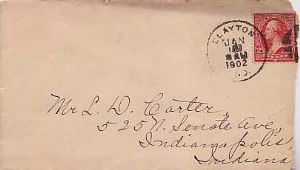 CLAYTON
JAN
1902
Mr. L. D. Carter,
525 N. Senate Ave.,
Indianapolis,
Indiana